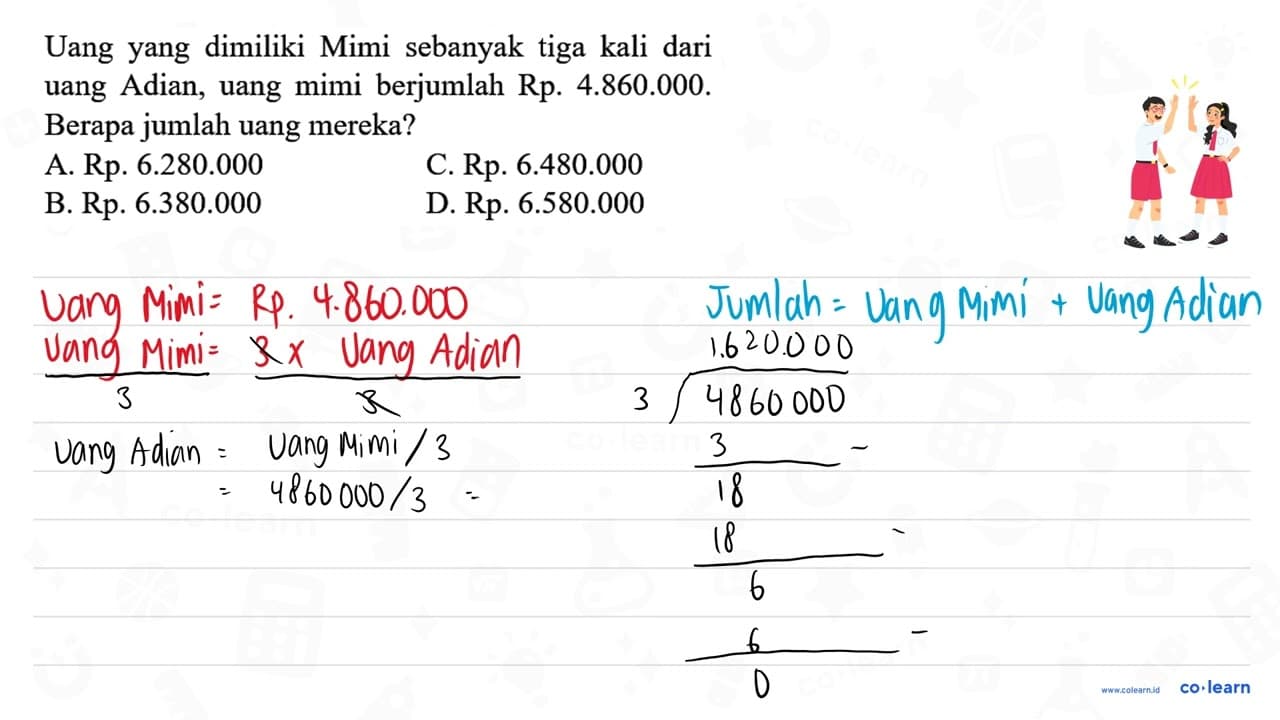 Uang yang dimiliki Mimi sebanyak tiga kali dari
uang Adian, uang mimi berjumlah Rp. 4.860.000.
Berapa jumlah uang mereka?
A. Rp. 6.280.000 C. Rp. 6.480.000
B. Rp. 6.380.000 D. Rp. 6.580.000
Uang Mimi = Rp. 4.860.000
Uang Mimi = 3 x Uang Adian
3 3
Uang Adian = Uang Mimi / 3
= 4860 000 / 3 =
Jumlah = Uang Mimi + Uang Adian
1.620.000
3 4860 000
3 -
18
18 -
6
6 -
0
www.colearn.id co·learn